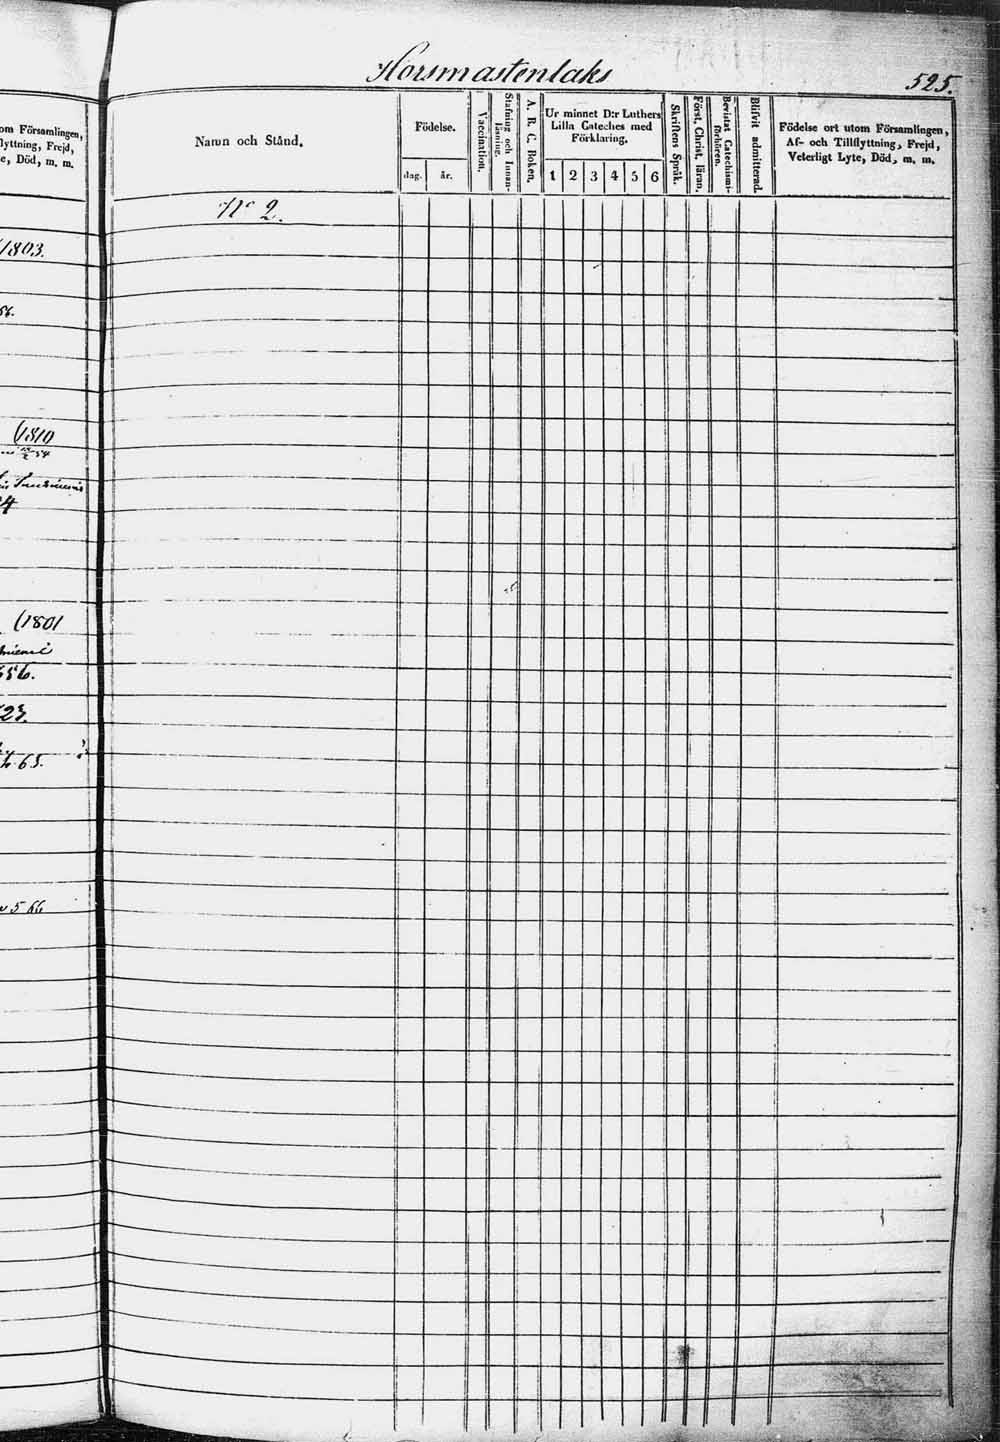 Horsmastenlaks
525.
om Församlingen,
lyttning, Frejd,
e, Död, m. m.
1803.
56.
(1810
54
4
(1801
56.
23.
65.
5 66
Namn och Stånd.
Födelse.
dag.
år.
Vaccination.
Stafning och Innan-
läsning.
A. B. C. Boken.
Ur minnet D:r Luthers
Lilla Cateches med
Förklaring.
1 2 3 4 5 6
Skriftens Språk.
Först. Christ. läran.
Bevistat Catechismi-
förhören.
Blifvit admitterad.
Födelse ort utom Församlingen,
Af- och Tillflyttning, Frejd,
Veterligt Lyte, Död, m. m.
N° 2.